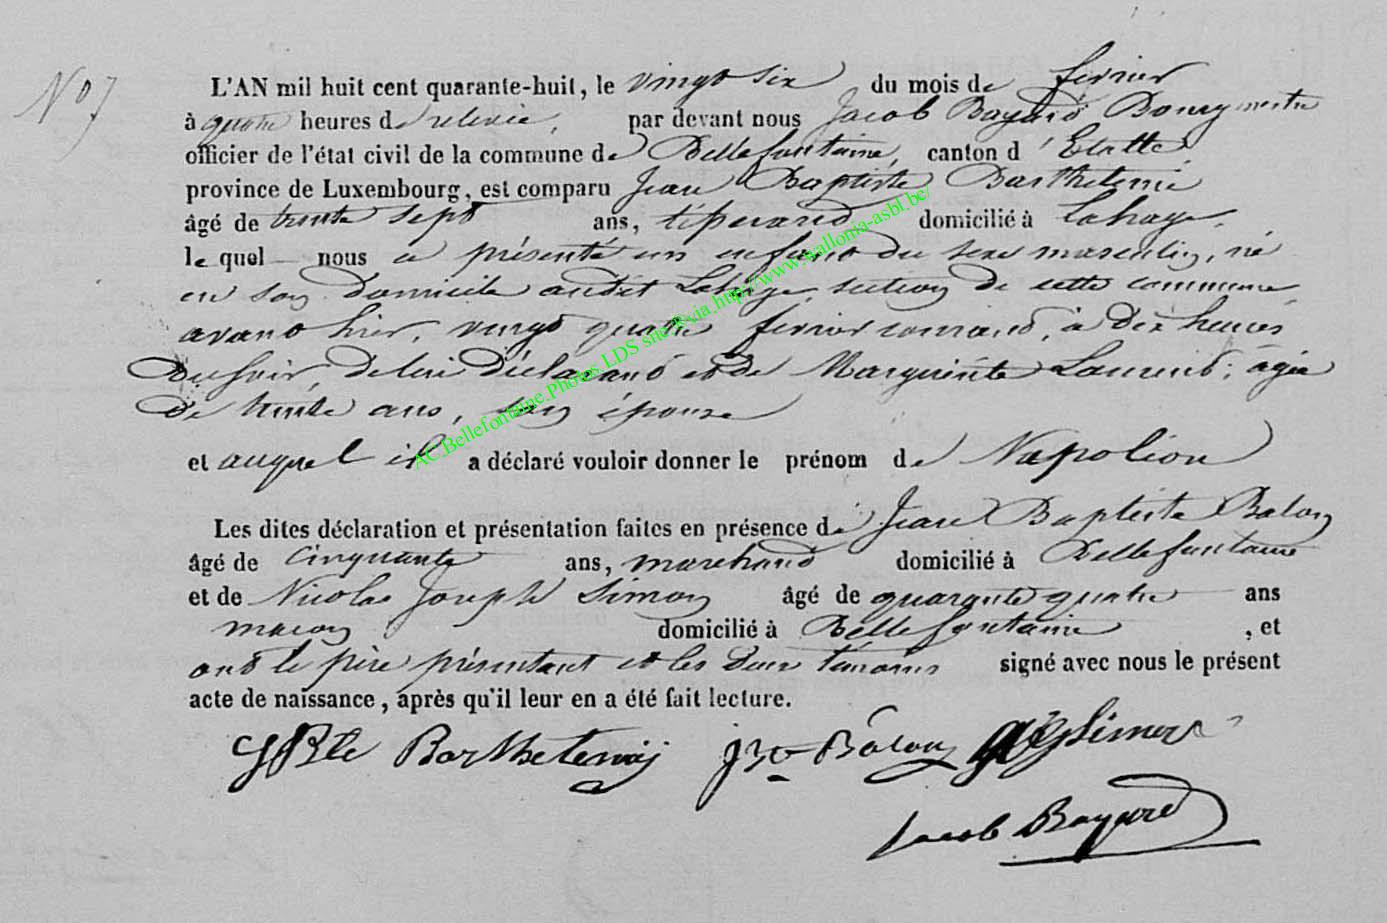 N° 7
L'AN mil huit cent quarante-huit, le vingt six du mois de février
à quatre heures de relevée, par devant nous Jacob Bayard Bourgmestre
officier de l'état civil de la commune de Bellefontaine, canton d'Etalle,
province de Luxembourg, est comparu Jean Baptiste Barthelemi
âgé de trente sept ans, tisserand domicilié à Lahage,
le quel nous a présenté un enfant du sexe masculin, né
en son domicile audit Lahage, section de cette commune,
avant hier, vingt quatre février courant, à dix heures
du soir, de lui déclarant et de Marguerite Laurent, agée
de trente ans, son épouse
et auquel il a déclaré vouloir donner le prénom de Napoléon
Les dites déclaration et présentation faites en présence de Jean Baptiste Balon
âgé de cinquante ans, marchand domicilié à Bellefontaine
et de Nicolas Joseph Simon âgé de quarante quatre ans
maçon domicilié à Bellefontaine, et
ont le père présentant et les deux témoins signé avec nous le présent
acte de naissance, après qu'il leur en a été fait lecture.
JBte Barthelemij JBte Balon Simon
Jacob Bayard
AC.Bellefontaine.Photos LDS site® via http://www.wallonia-asbl.be/